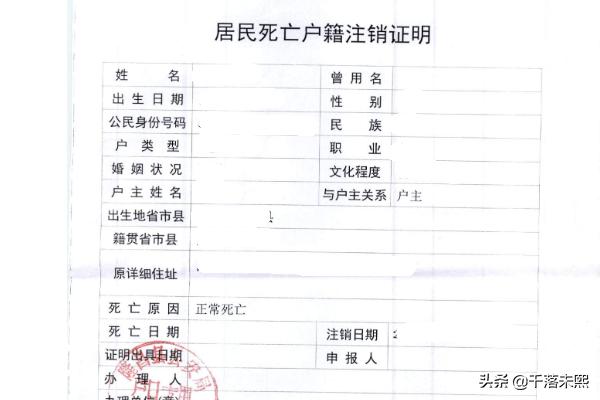 居民死亡户籍注销证明
姓 名 曾用名
出生日期 性 别
公民身份号码 民 族
户 类 型 职 业
婚姻状况 文化程度
户主姓名 与户主关系 户主
出生地省市县 县
籍贯省市县
原详细住址
死亡原因 正常死亡
死亡日期 注销日期 2
证明出具日期 申 报 人
办 理 人
县公安局
头条 @千落未熙